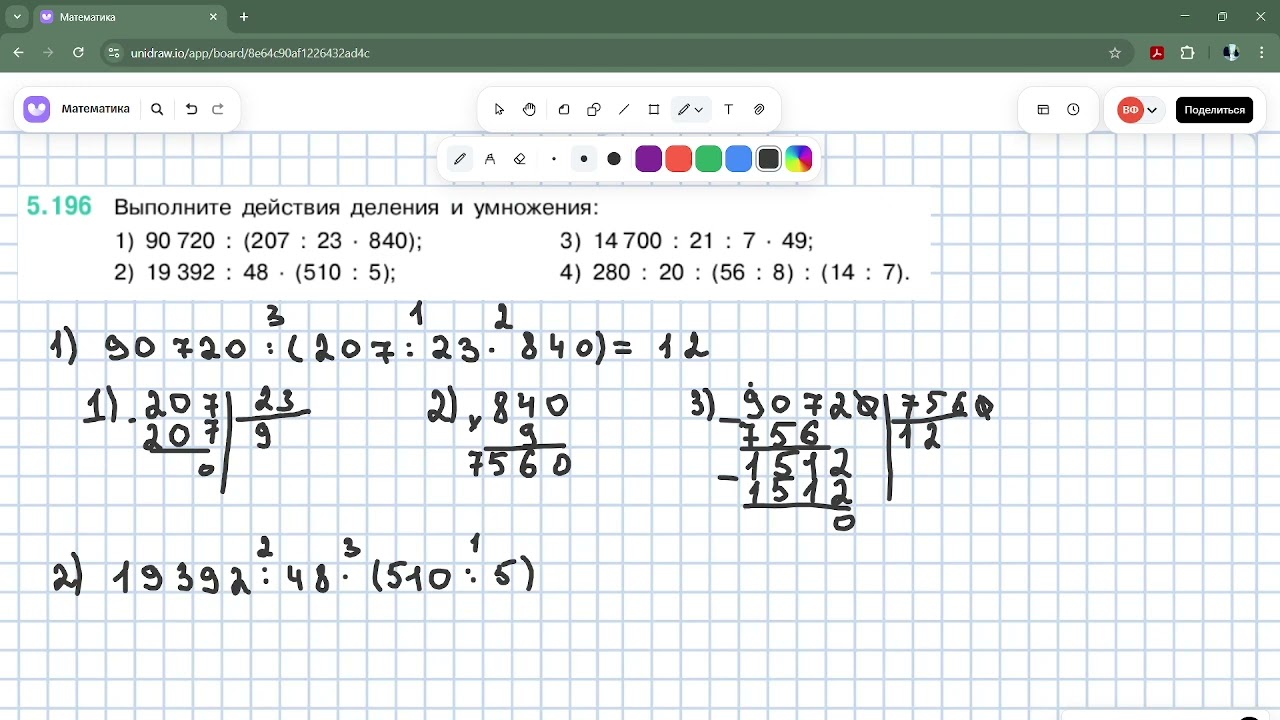 Математика
unidraw.io/app/board/8e64c90af1226432ad4c
Математика
T
ВФ
Поделиться
5.196 Выполните действия деления и умножения:
1) 90 720 : (207 : 23 · 840); 3) 14 700 : 21 : 7 · 49;
2) 19 392 : 48 · (510 : 5); 4) 280 : 20 : (56 : 8) : (14 : 7).
3 1 2
1) 90720 : (207 : 23 · 840) = 12
1) 207 23 2) 840 3) 90720 7560
207 9 × 9 – 756 12
0 7560 – 1512
1512
0
2 3 1
2) 19392 : 48 · (510 : 5)